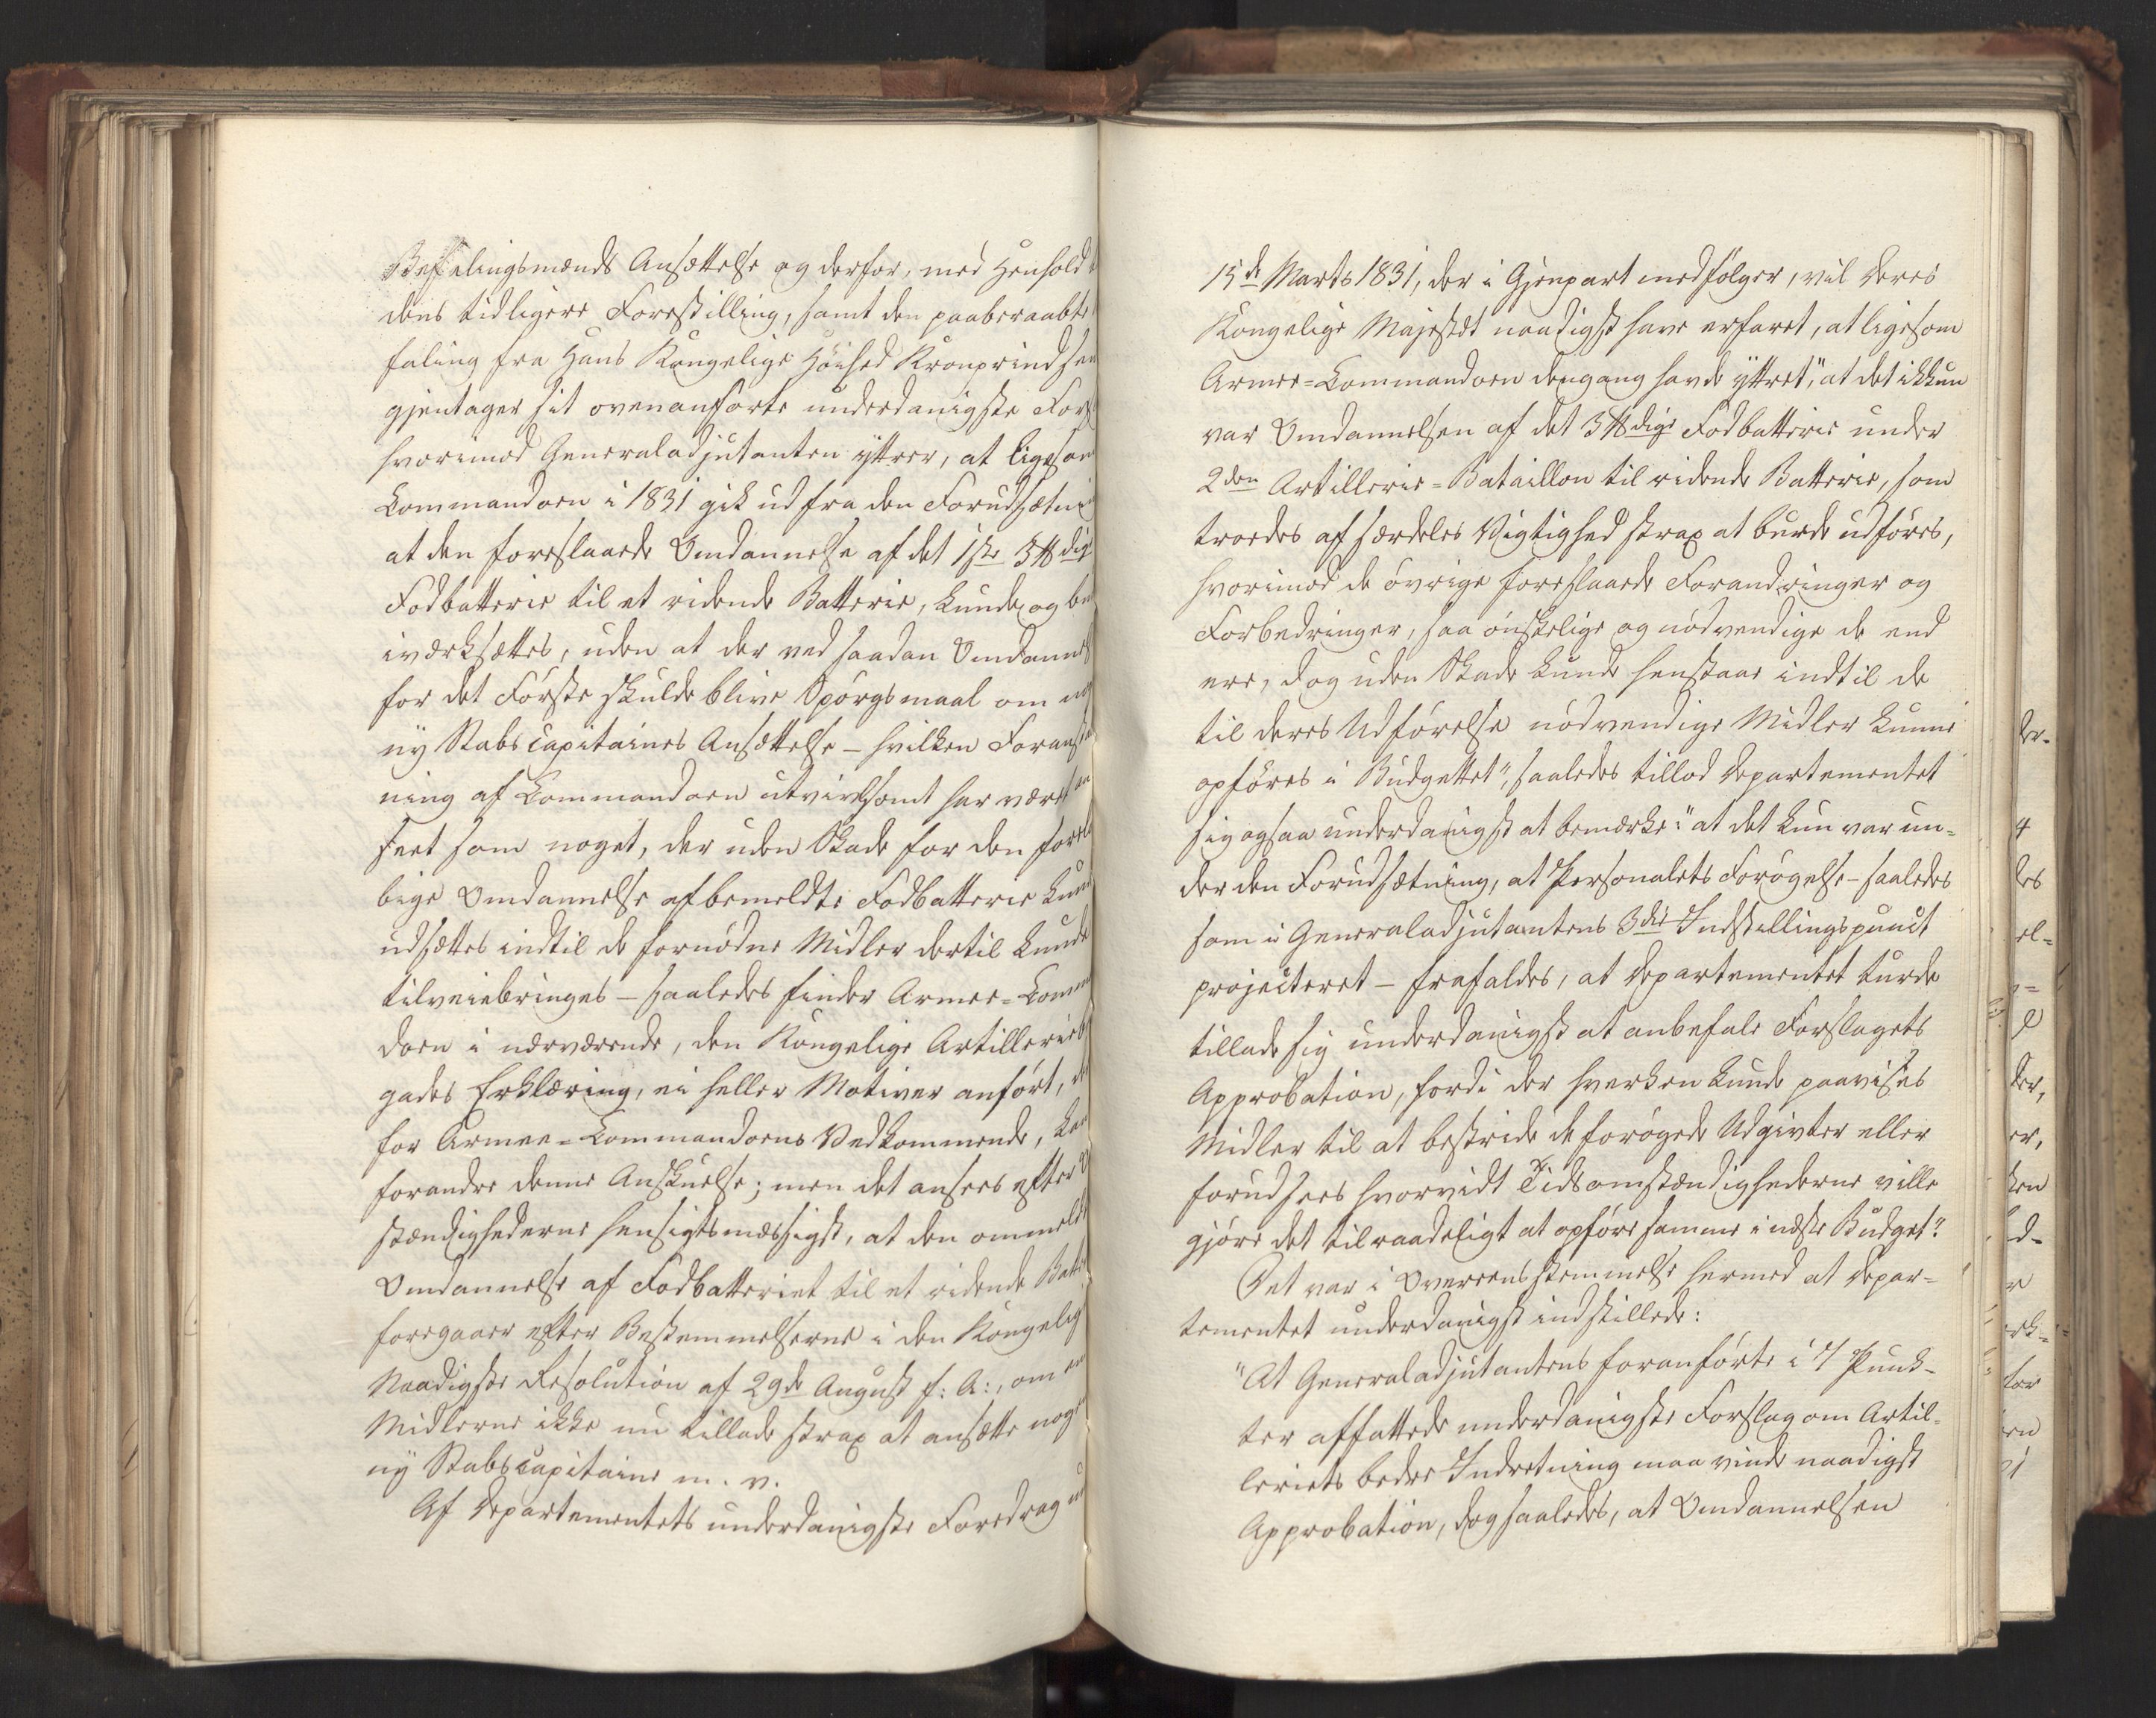 Befalingsmænds Ansættelse og derfor, med Henhold
dens tidligere Forestilling, samt den paaberaabte
faling fra Hans Kongelige Höihed Kronprindsen
gjentager sit ovenanførte underdanigste Fors
hvorimod Generaladjutanten yttrer, at ligesom
Commandoen i 1831 gik ud fra den Forudsætni
at den foreslaaede Omdannelse af det 1ste 3 ℔dige
Fodbatterie til et ridende Batterie, kunde og bu
iværksættes, uden at der ved saadan Omdannel
for det Förste skulde blive Spörgsmaal om no
ny Stabscapitaines Ansættelse – hvilken Foransta
ning af Commandoen utvivlsomt har været an
seet som noget, der uden Skade for den forelö
bige Omdannelse af bemeldte Fodbatterie kund
udsættes indtil de fornödne Midler dertil kunde
tilveiebringes – saaledes finder Armee-Comman
doen i nærværende, den Kongelige Artillerieb
gades Erklæring, ei heller Motiver anfört, de
for Armee-Commandoens Vedkommende, kan
forandre denne Anskuelse; men det ansees efter O
stændighederne hensigtsmæssigst, at den ommeldt
Omdannelse af Fodbatteriet til et ridende Batte
foregaaer efter Bestemmelserne i den Kongelig
Naadigste Resolution af 29de August f: A:, om en
Midlerne ikke nu tillade strax at ansætte nogen
ny Stabscapitaine m. v.
Af Departementets underdanigste Foredrag u
15de Marts 1831, der i Gjenpart medfölger, vil Deres
Kongelige Majestæt naadigst have erfaret, at ligesom
Armee-Commandoen dengang havde yttret, "at det ikkun
var Omdannelsen af det 3 ℔dige Fodbatterie under
2den Artillerie-Bataillon til ridende Batterie, som
troedes af særdeles Vigtighed strax at burde udföres,
hvorimod de övrige foreslaaede Forandringer og
Forbedringer, saa önskelige og nödvendige de end
ere, dog uden Skade kunde henstaae indtil de
til deres Udförelse nödvendige Midler kunne
opföres i Budgettet", saaledes tillod Departementet
sig ogsaa underdanigst at bemærke: "at det kun var un-
der den Forudsætning, at Personalets Forögelse – saaledes
som i Generaladjutantens 3die Indstillingspunct
projecteret – frafaldes, at Departementet turde
tillade sig underdanigst at anbefale Forslagets
Approbation, fordi der hverken kunde paavises
Midler til at bestride de forögede Udgivter eller
forudsees hvorvidt Tidsomstændighederne ville
gjöre det tilraadeligt at opföre samme i næste Budget".
Det var i Overeensstemmelse hermed at Depar-
tementet underdanigst indstillede:
"At Generaladjutantens foranförte i 7 Punk-
ter affattede underdanigste Forslag om Artil-
leriets bedre Indretning maa vinde naadigst
Approbation, dog saaledes, at Omdannelsen